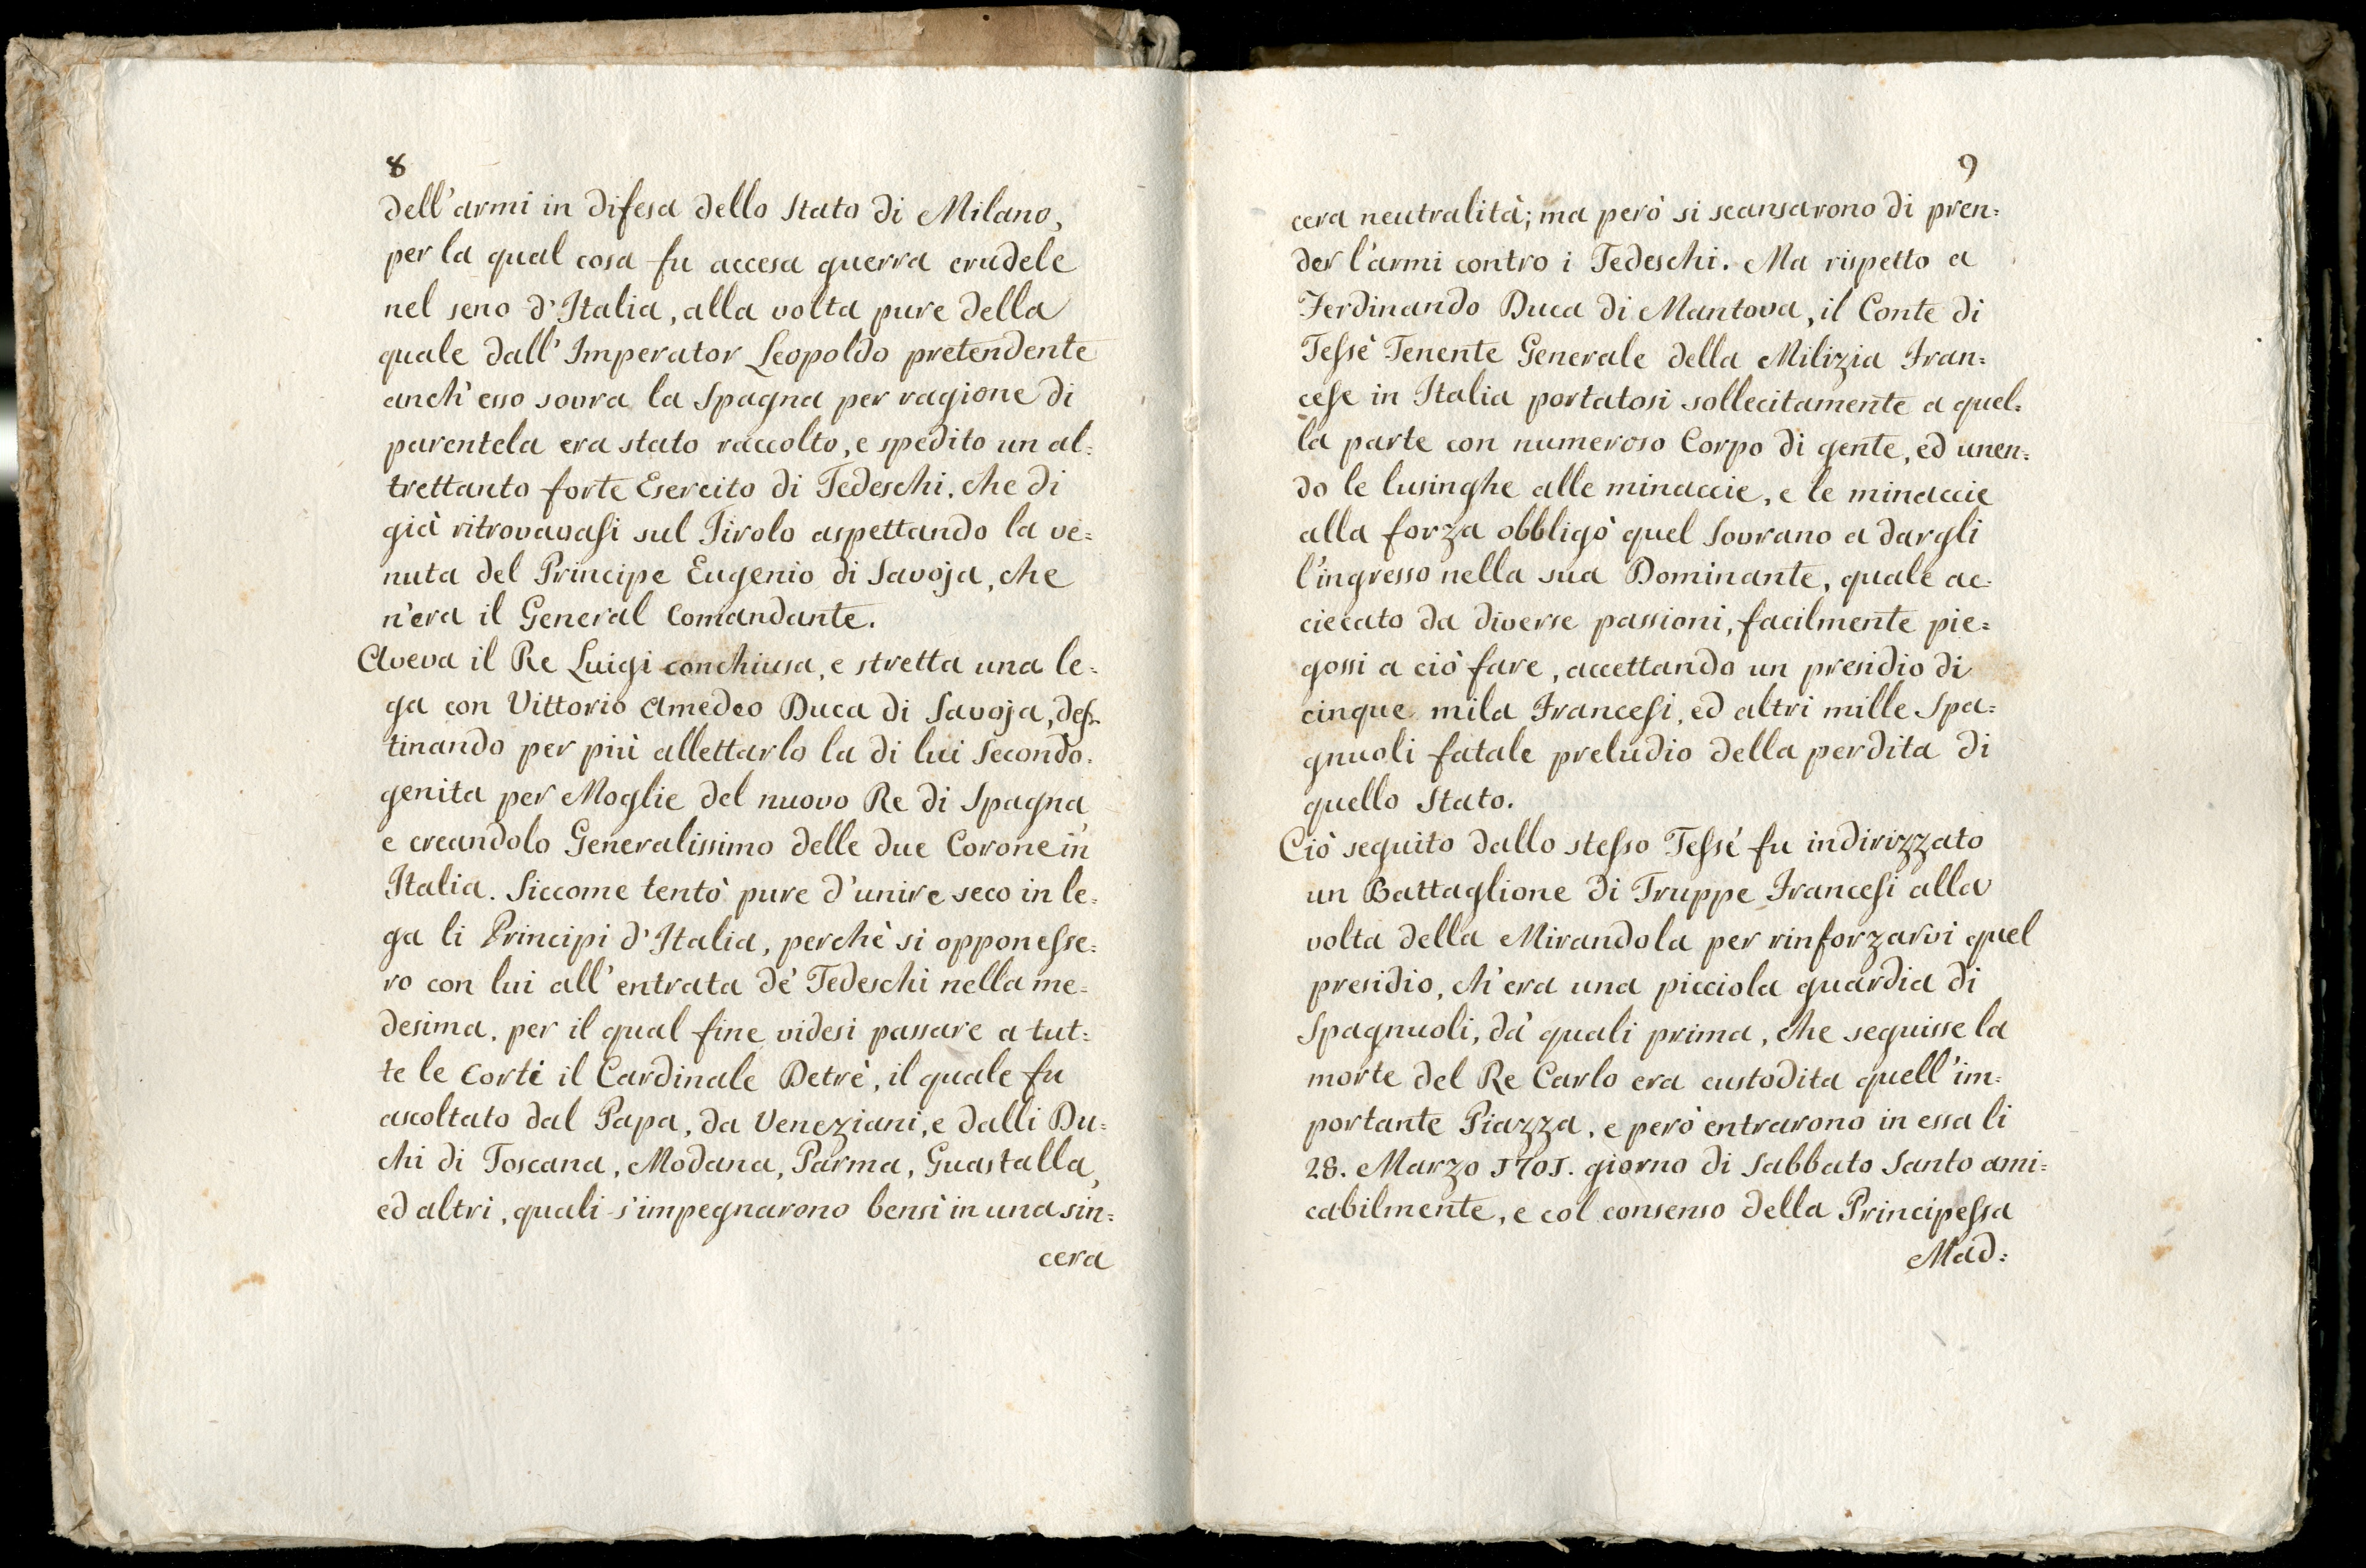 8
dell'armi in difesa dello Stato di Milano,
per la qual cosa fu accesa guerra crudele
nel seno d'Italia, alla volta pure della
quale dall'Imperator Leopoldo pretendente
anch'esso sovra la Spagna per ragione di
parentela era stato raccolto, e spedito un al=
trettanto forte Esercito di Tedeschi, che di
già ritrovavasi sul Tirolo aspettando la ve=
nuta del Principe Eugenio di Savoja, che
n'era il General Comandante.
Aveva il Re Luigi conchiusa, e stretta una le=
ga con Vittorio Amedeo Duca di Savoja, des=
tinando per più allettarlo la di lui Secondo=
genita per Moglie del nuovo Re di Spagna
e creandolo Generalissimo delle due Corone in
Italia. Siccome tentò pure d'unire seco in le=
ga li Principi d'Italia, perchè si opponesse=
ro con lui all'entrata de' Tedeschi nella me=
desima, per il qual fine videsi passare a tut=
te le Corti il Cardinale Detrè, il quale fu
ascoltato dal Papa, da Veneziani, e dalli Du=
chi di Toscana, Modana, Parma, Guastalla,
ed altri, quali s'impegnarono bensì in una sin=
cera
9
cera neutralità; ma però si scansarono di pren=
der l'armi contro i Tedeschi. Ma rispetto a
Ferdinando Duca di Mantova, il Conte di
Tessè Tenente Generale della Milizia Fran=
cese in Italia portatosi sollecitamente a quel=
la parte con numeroso Corpo di gente, ed unen=
do le lusinghe alle minaccie, e le minaccie
alla forza obbligò quel Sovrano a dargli
l'ingresso nella sua Dominante, quale ac=
ciecato da diverse passioni, facilmente pie=
gossi a ciò fare, accettando un presidio di
cinque mila Francesi, ed altri mille Spa=
gnuoli fatale preludio della perdita di
quello Stato.
Ciò seguito dallo stesso Tessé fu indirizzato
un Battaglione di Truppe Francesi alla
volta della Mirandola per rinforzarvi quel
presidio, ch'era una picciola guardia di
Spagnuoli, da' quali prima, che seguisse la
morte del Re Carlo era custodita quell'im=
portante Piazza, e però entrarono in essa li
28. Marzo 1701. giorno di Sabbato Santo ami=
cabilmente, e col consenso della Principessa
Mad=